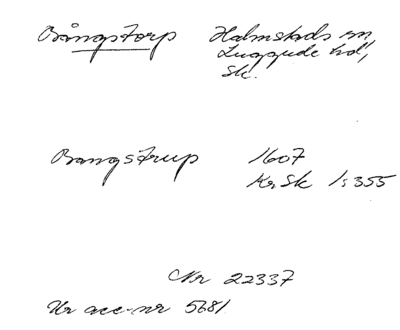 Bångstorp Halmstads sn,
Luggude hd,
Sk.
Bangstrup 1607
KrSk 1:355
Nr 22337
Ur acc-nr 5681